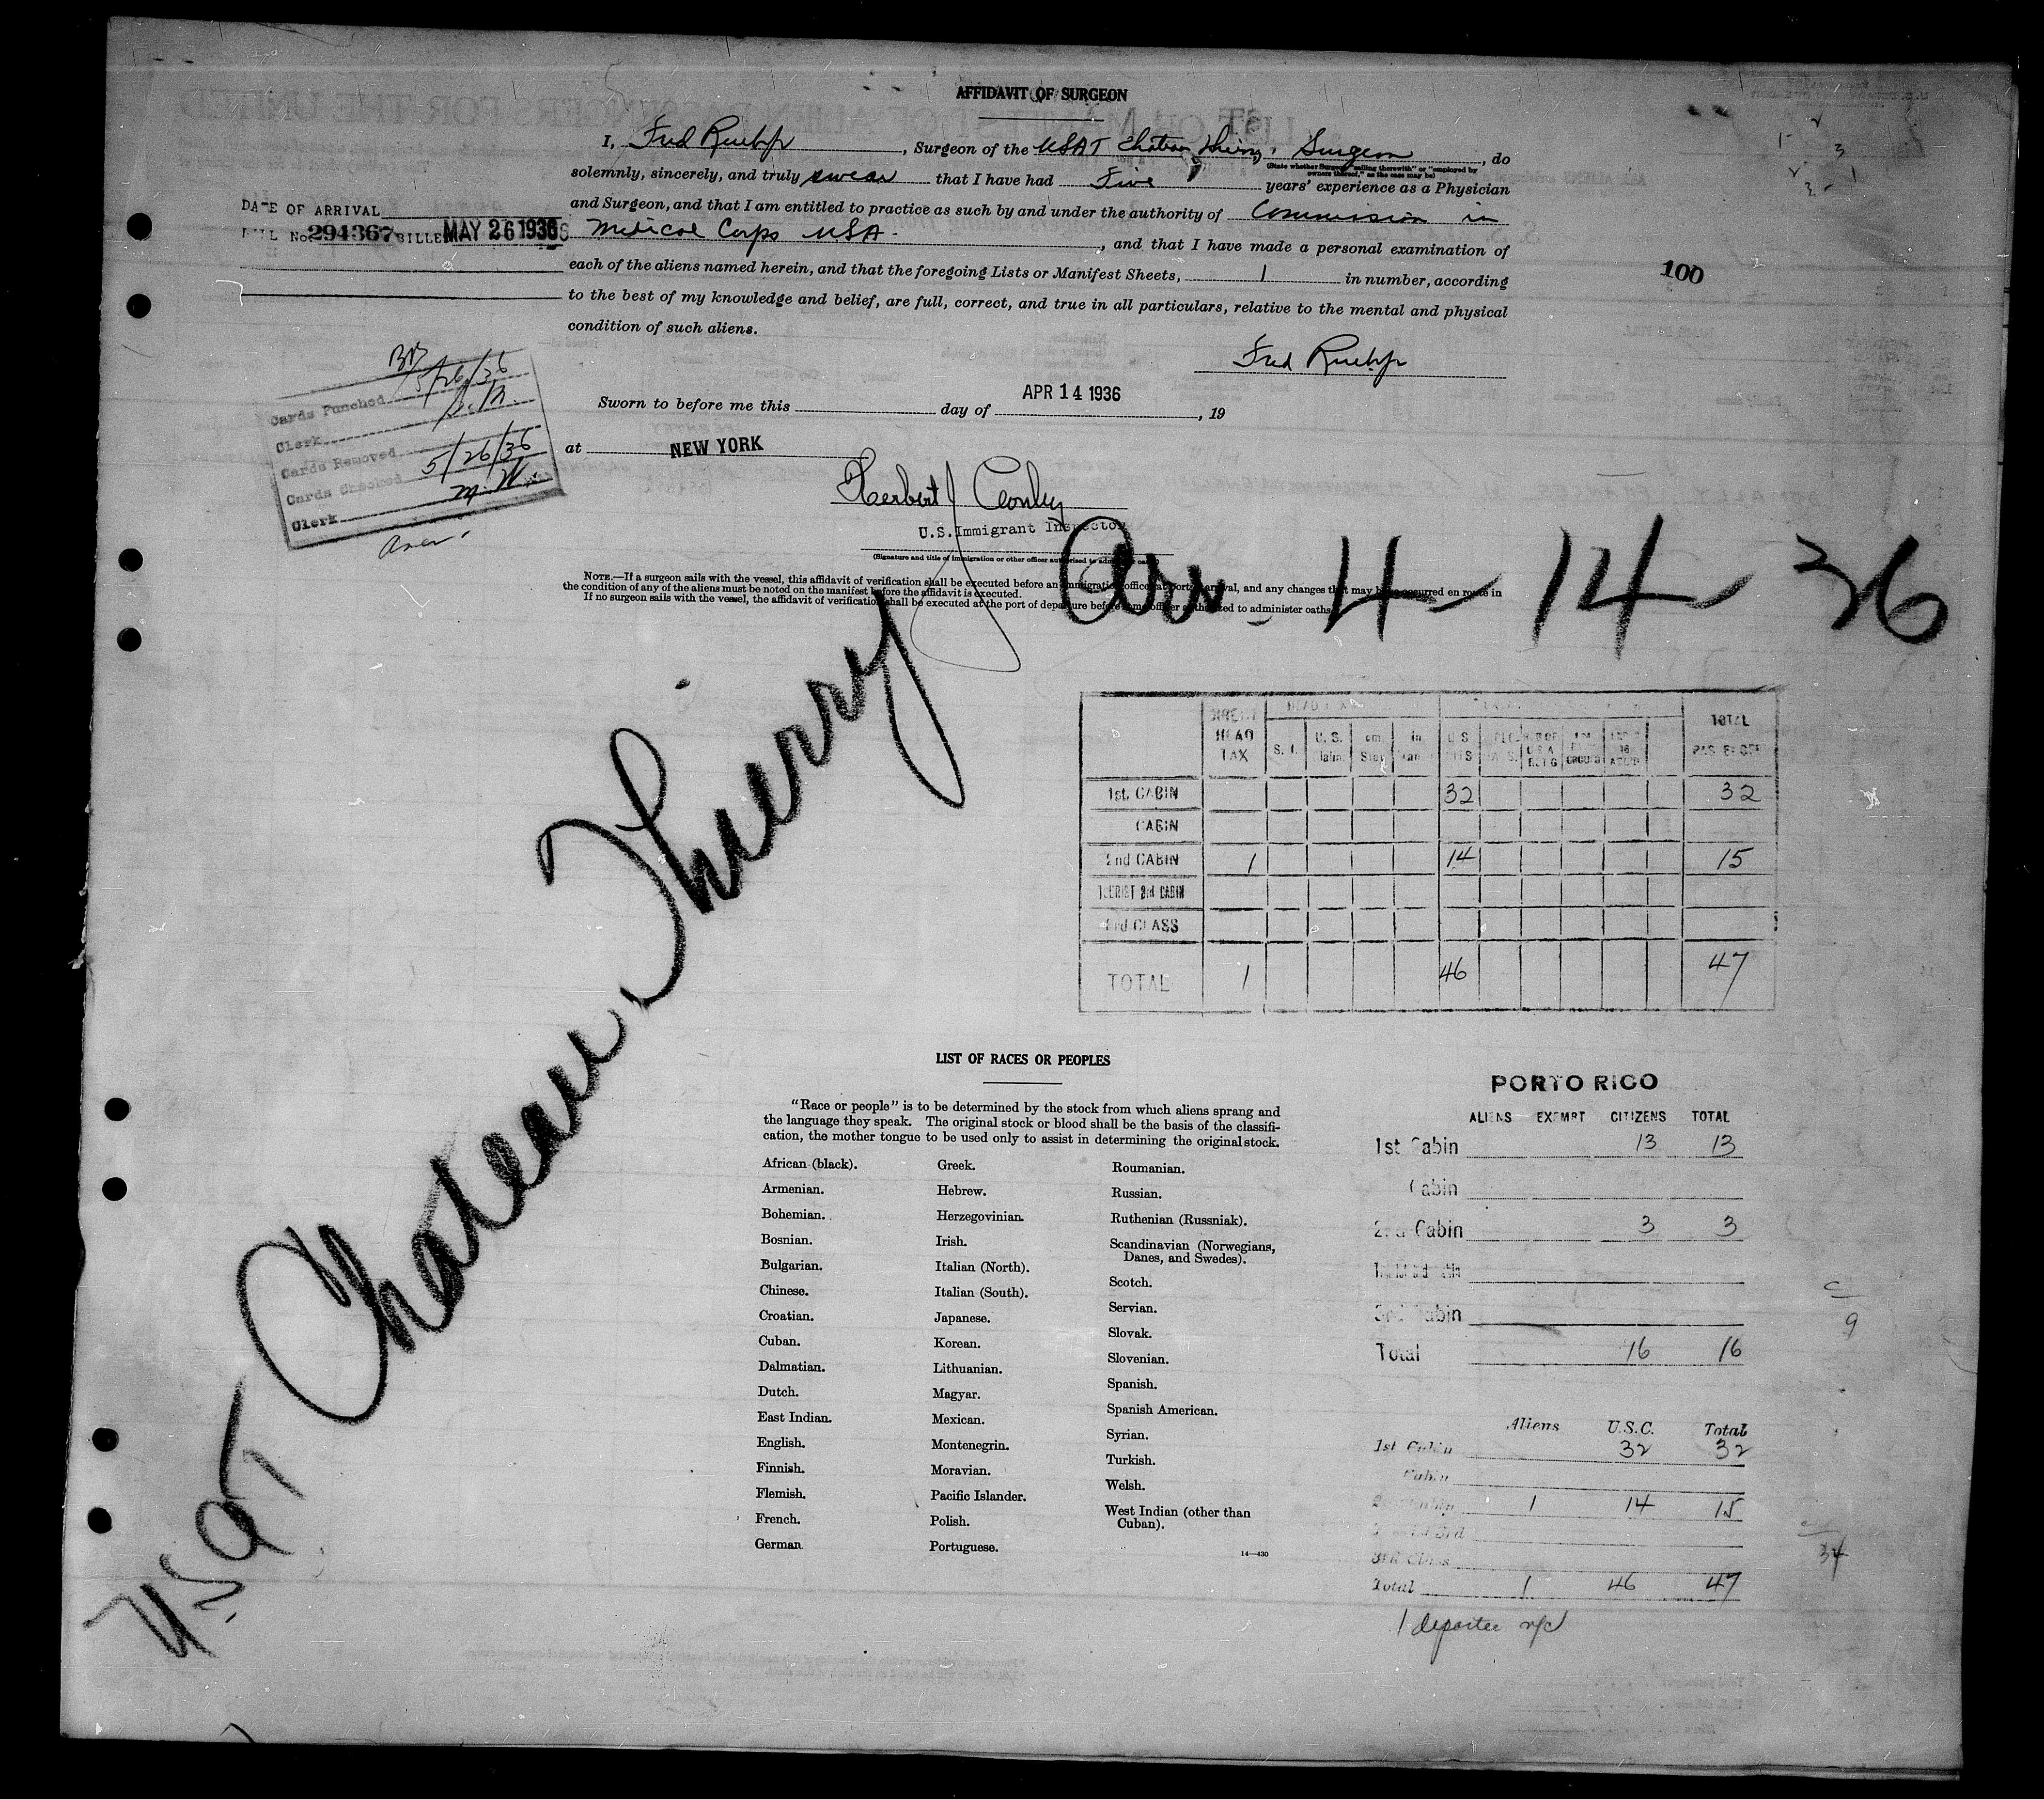 AFFIDAVIT OF SURGEON
I, Fred , Surgeon of the USAT Chateau Thierry, Surgeon, do
(State whether Surgeon "sailing therewith" or "employed by owners thereof," as the case may be)
solemnly, sincerely, and truly swear that I have had Five years' experience as a Physician
and Surgeon, and that I am entitled to practice as such by and under the authority of Commission in
Medical Corps USA., and that I have made a personal examination of
each of the aliens named herein, and that the foregoing Lists or Manifest Sheets, 1 in number, according
to the best of my knowledge and belief, are full, correct, and true in all particulars, relative to the mental and physical
condition of such aliens.
DATE OF ARRIVAL
BILL No. 294367 BILLED MAY 26 1936
100
Fred
Sworn to before me this day of APR 14 1936, 19
at NEW YORK
Herbert J Conley
U.S. Immigrant Inspector
(Signature and title of immigration or other officer authorized to administer oaths)
Cards Punched 5/26/36
Clerk
Cards Removed
Cards Checked 5/26/36
Clerk M.W.
NOTE.—If a surgeon sails with the vessel, this affidavit of verification shall be executed before an immigration officer at port of arrival, and any changes that may have occurred en route in
the condition of any of the aliens must be noted on the manifest before the affidavit is executed.
If no surgeon sails with the vessel, the affidavit of verification shall be executed at the port of departure before some officer authorized to administer oaths.
Arr. 4-14-36
USAT Chateau Thierry
HEAD TAX S. I. U. S. TOTAL
1st. CABIN 32 32
CABIN
2nd CABIN 1 14 15
TOURIST 3rd CABIN
3rd CLASS
TOTAL 1 46 47
LIST OF RACES OR PEOPLES
"Race or people" is to be determined by the stock from which aliens sprang and
the language they speak. The original stock or blood shall be the basis of the classifi-
cation, the mother tongue to be used only to assist in determining the original stock.
African (black).
Armenian.
Bohemian.
Bosnian.
Bulgarian.
Chinese.
Croatian.
Cuban.
Dalmatian.
Dutch.
East Indian.
English.
Finnish.
Flemish.
French.
German
Greek.
Hebrew.
Herzegovinian.
Irish.
Italian (North).
Italian (South).
Japanese.
Korean.
Lithuanian.
Magyar.
Mexican.
Montenegrin.
Moravian.
Pacific Islander.
Polish.
Portuguese.
Roumanian.
Russian.
Ruthenian (Russniak).
Scandinavian (Norwegians,
Danes, and Swedes).
Scotch.
Servian.
Slovak.
Slovenian.
Spanish.
Spanish American.
Syrian.
Turkish.
Welsh.
West Indian (other than
Cuban).
14—430
PORTO RICO
ALIENS EXEMPT CITIZENS TOTAL
1st Cabin 13 13
Cabin
2nd Cabin 3 3
3rd Cabin
Total 16 16
Aliens U.S.C. Total
1st Cabin 32 32
Cabin
1 14 15
3rd Class
Total 1 46 47
1 deportee
C
9
34